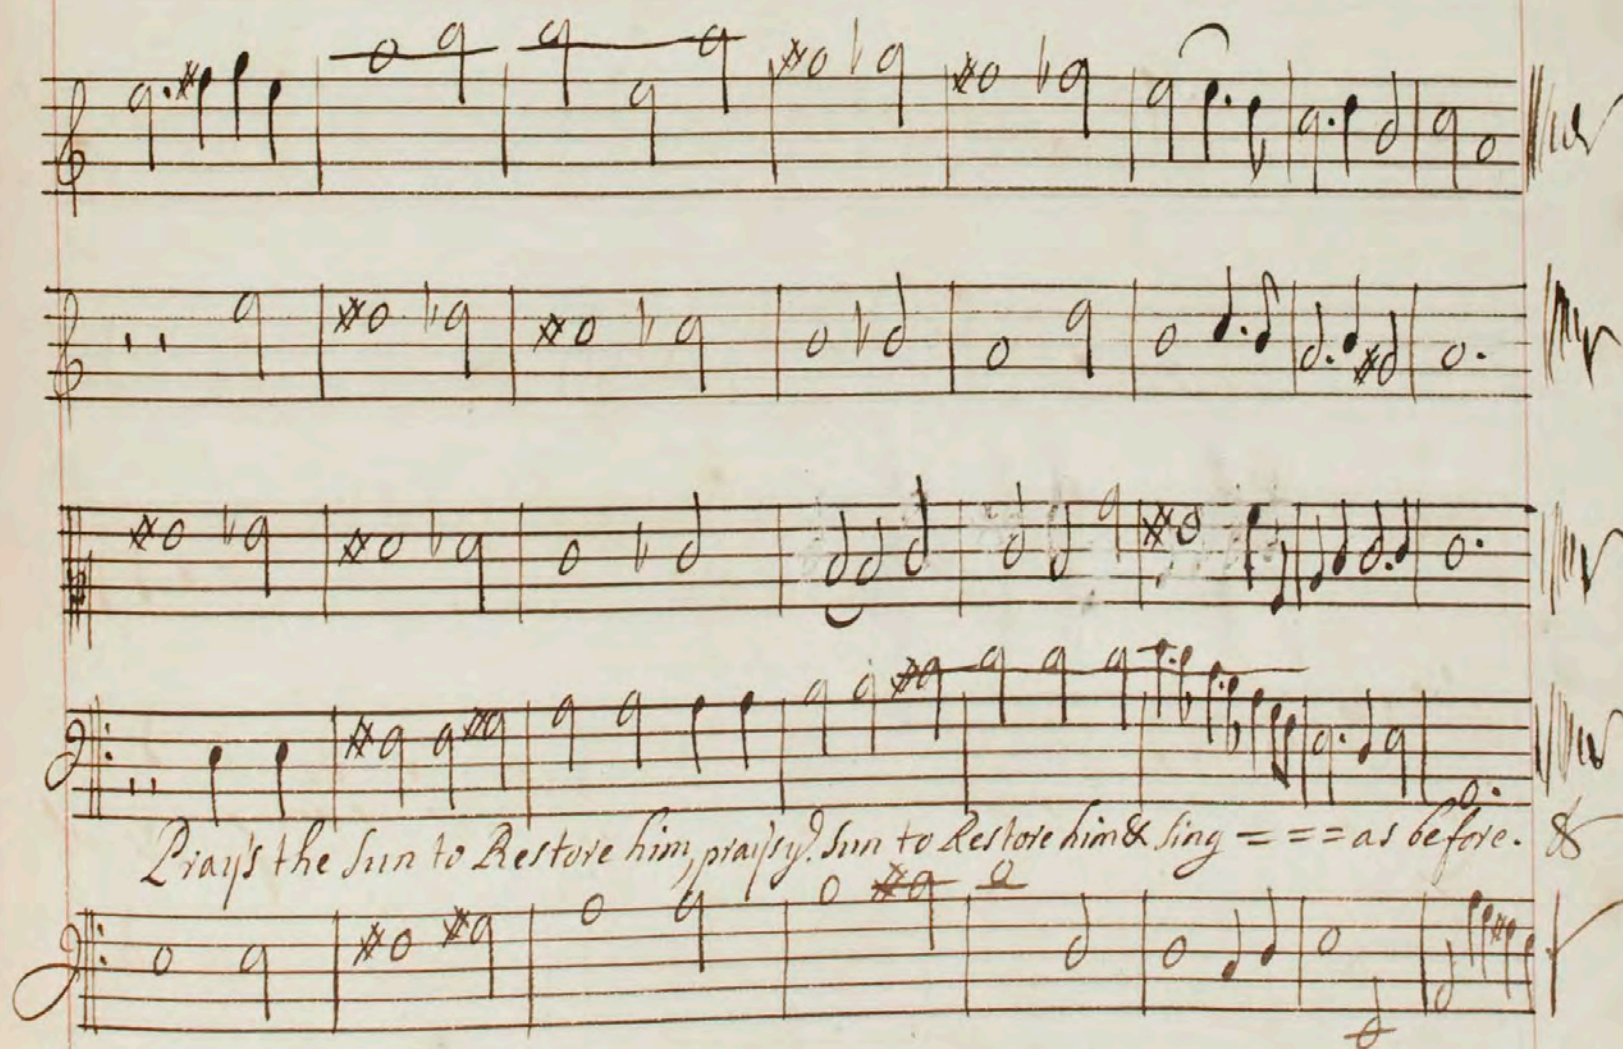 Pray's the Sun to Restore him, prays yͤ. Sun to Restore him & sing = = = as before. &